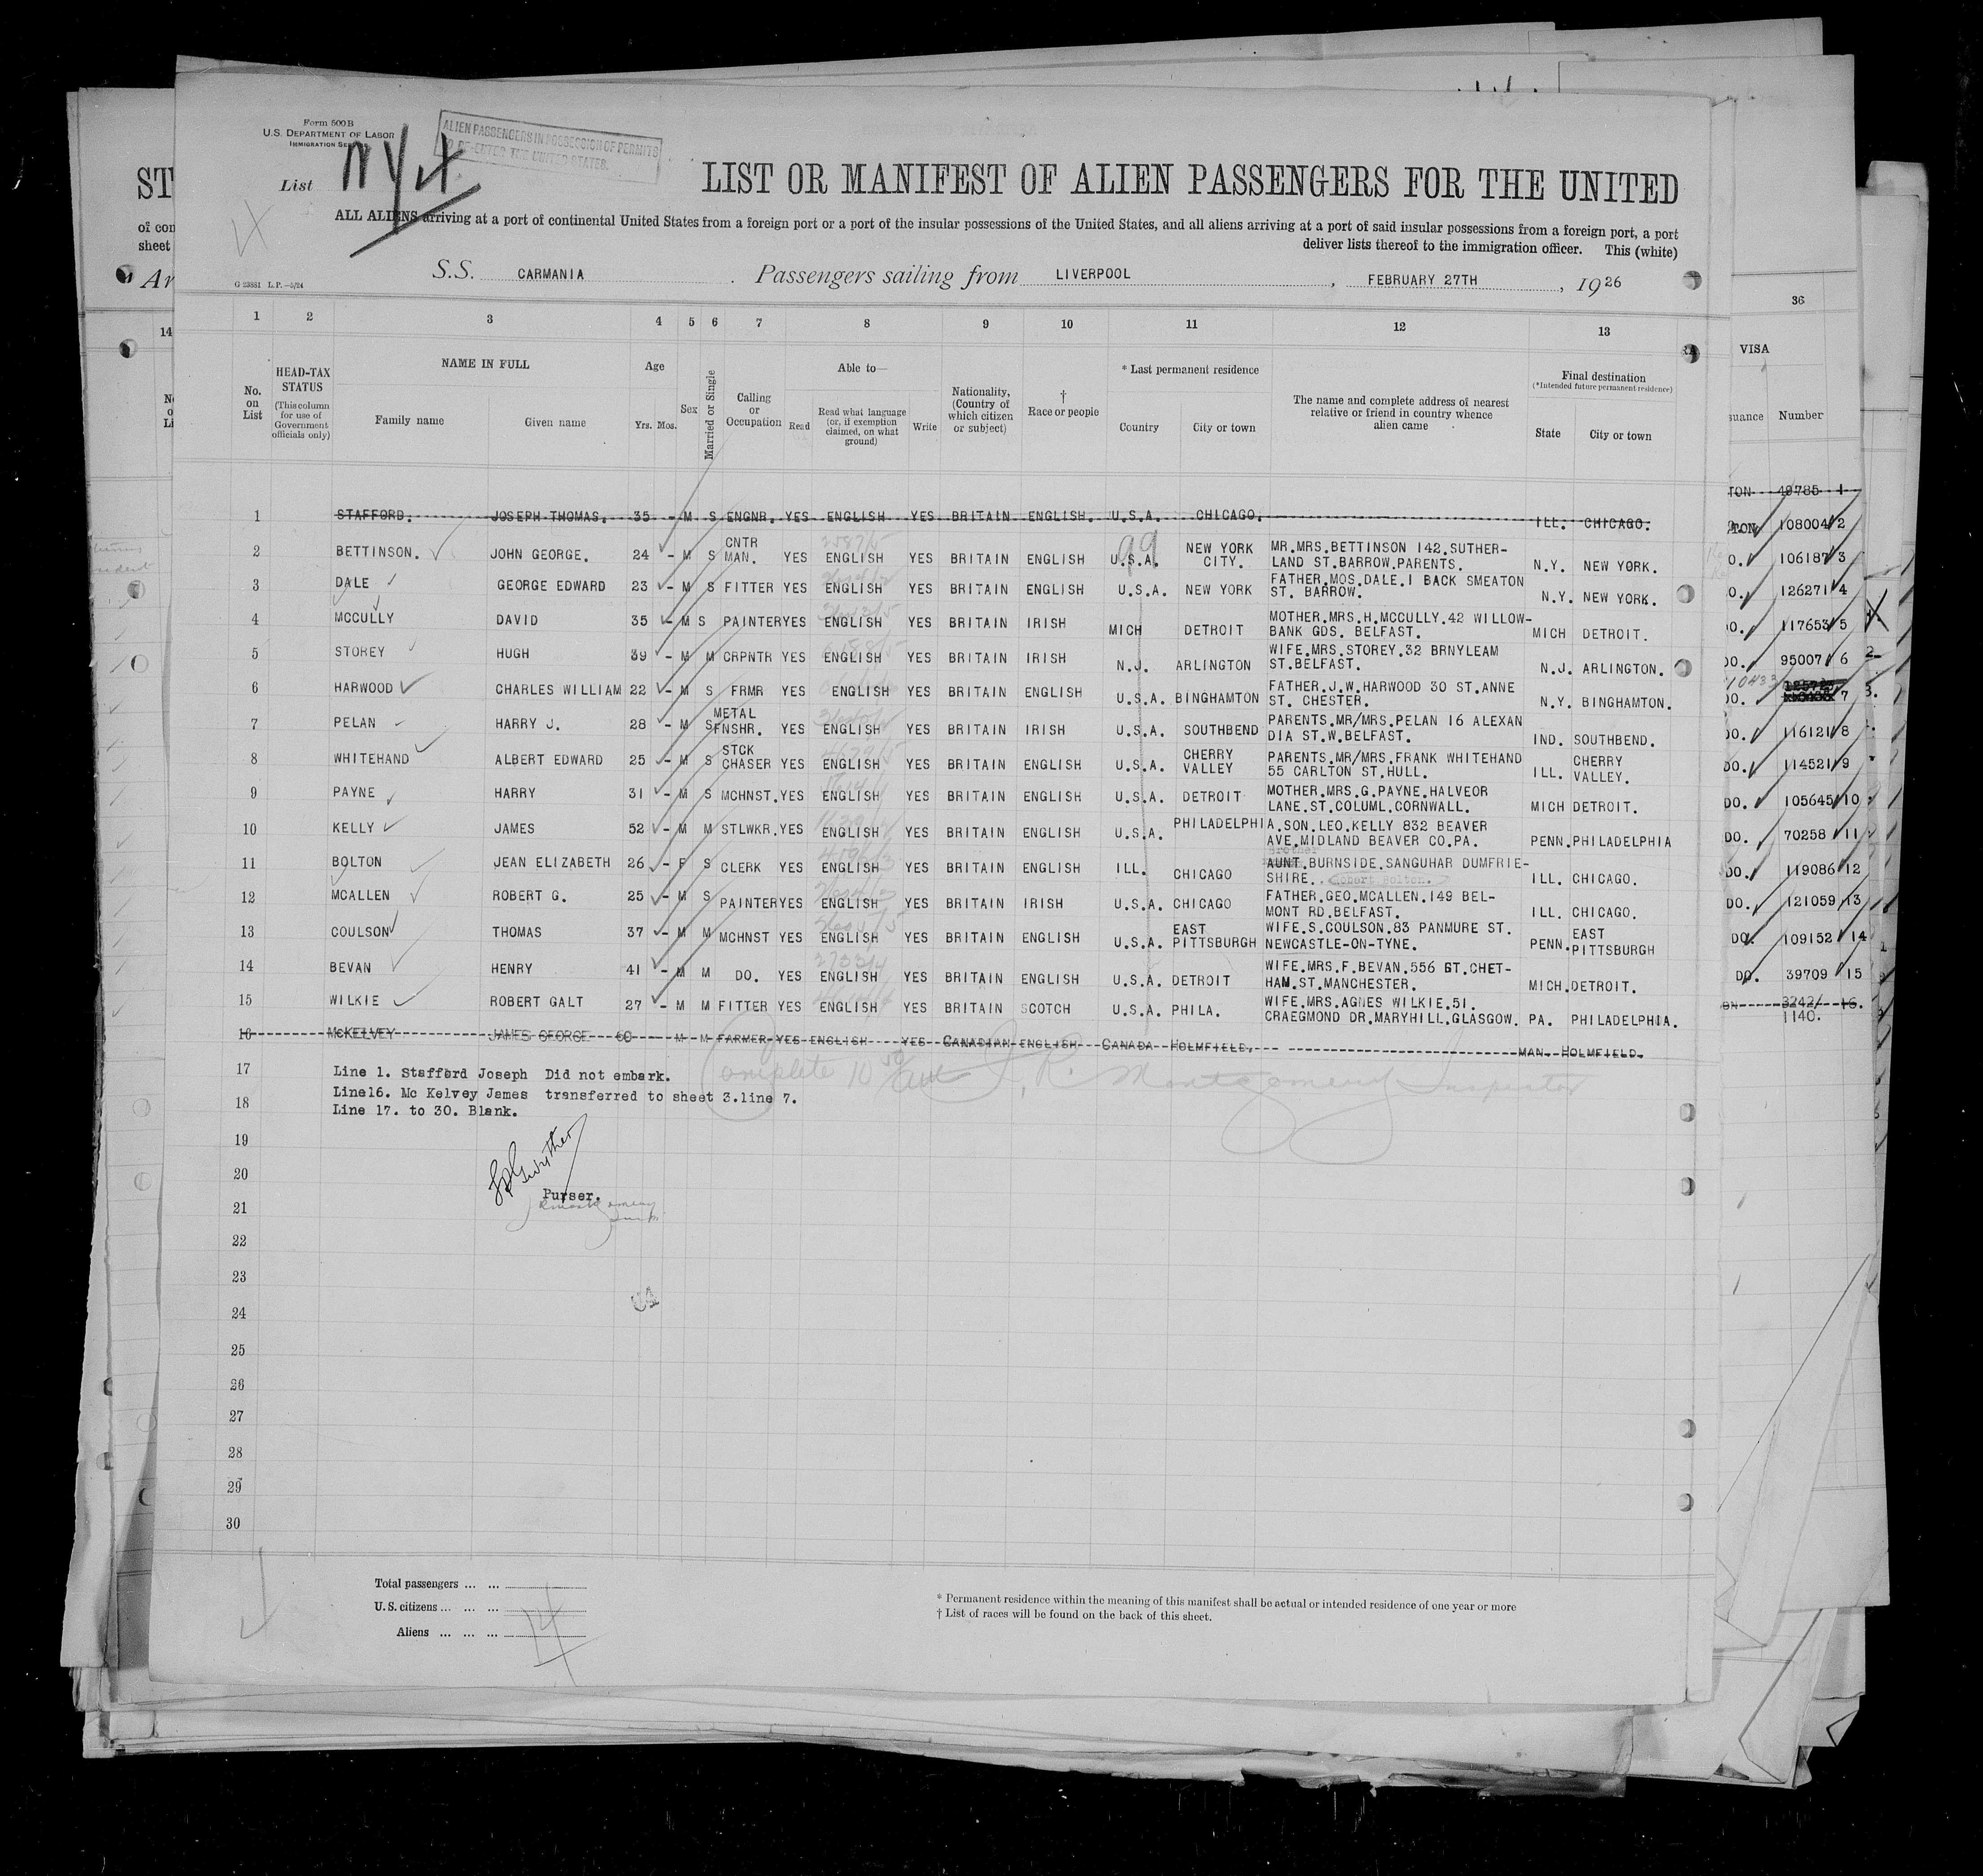 Form 500B
U.S. DEPARTMENT OF LABOR
IMMIGRATION
ALIEN PASSENGERS IN POSSESSION OF PERMITS
TO RE-ENTER THE UNITED STATES.
List
NY
LIST OR MANIFEST OF ALIEN PASSENGERS FOR THE UNITED
ALL ALIENS arriving at a port of continental United States from a foreign port or a port of the insular possessions of the United States, and all aliens arriving at a port of said insular possessions from a foreign port, a port
deliver lists thereof to the immigration officer. This (white)
S.S. CARMANIA. Passengers sailing from LIVERPOOL, FEBRUARY 27TH, 1926
G 23881 L.P.—5/24
1 2 3 4 5 6 7 8 9 10 11 12 13
No. on List
HEAD-TAX STATUS (This column for use of Government officials only)
NAME IN FULL
Family name Given name
Age
Yrs. Mos.
Sex
Married or Single
Calling or Occupation
Able to—
Read
Read what language (or, if exemption claimed, on what ground)
Write
Nationality, (Country of which citizen or subject)
† Race or people
* Last permanent residence
Country City or town
The name and complete address of nearest relative or friend in country whence alien came
Final destination
(*Intended future permanent residence)
State City or town
1 STAFFORD. JOSEPH THOMAS. 35 - M S ENGNR. YES ENGLISH YES BRITAIN ENGLISH. U.S.A. CHICAGO. ILL. CHICAGO.
2 BETTINSON. JOHN GEORGE. 24 - M S CNTR MAN. YES ENGLISH YES BRITAIN ENGLISH U.S.A. NEW YORK CITY. MR.MRS.BETTINSON 142.SUTHER-LAND ST.BARROW.PARENTS. N.Y. NEW YORK.
3 DALE GEORGE EDWARD 23 - M S FITTER YES ENGLISH YES BRITAIN ENGLISH U.S.A. NEW YORK FATHER.MOS.DALE.1 BACK SMEATON ST. BARROW. N.Y. NEW YORK.
4 MCCULLY DAVID 35 - M S PAINTER YES ENGLISH YES BRITAIN IRISH MICH DETROIT MOTHER.MRS.H.MCCULLY.42 WILLOW-BANK GDS. BELFAST. MICH DETROIT.
5 STOREY HUGH 39 - M M CRPNTR YES ENGLISH YES BRITAIN IRISH N.J. ARLINGTON WIFE.MRS.STOREY.32 BRNYLEAM ST.BELFAST. N.J. ARLINGTON.
6 HARWOOD CHARLES WILLIAM 22 - M S FRMR YES ENGLISH YES BRITAIN ENGLISH U.S.A. BINGHAMTON FATHER.J.W.HARWOOD 30 ST.ANNE ST. CHESTER. N.Y. BINGHAMTON.
7 PELAN HARRY J. 28 - M S METAL FNSHR. YES ENGLISH YES BRITAIN IRISH U.S.A. SOUTHBEND PARENTS.MR/MRS.PELAN 16 ALEXAN DIA ST.W.BELFAST. IND. SOUTHBEND.
8 WHITEHAND ALBERT EDWARD 25 - M S STCK CHASER YES ENGLISH YES BRITAIN ENGLISH U.S.A. CHERRY VALLEY PARENTS.MR/MRS.FRANK WHITEHAND 55 CARLTON ST.HULL. ILL. CHERRY VALLEY.
9 PAYNE HARRY 31 - M S MCHNST. YES ENGLISH YES BRITAIN ENGLISH U.S.A. DETROIT MOTHER.MRS.G.PAYNE.HALVEOR LANE.ST.COLUML.CORNWALL. MICH DETROIT.
10 KELLY JAMES 52 - M M STLWKR. YES ENGLISH YES BRITAIN ENGLISH U.S.A. PHILADELPHIA.SON.LEO.KELLY 832 BEAVER AVE.MIDLAND BEAVER CO.PA. PENN. PHILADELPHIA
11 BOLTON JEAN ELIZABETH 26 - F S CLERK YES ENGLISH YES BRITAIN ENGLISH ILL. CHICAGO Brother AUNT.BURNSIDE.SANGUHAR DUMFRIE-SHIRE. Robert Bolton. ILL. CHICAGO.
12 MCALLEN ROBERT G. 25 - M S PAINTER YES ENGLISH YES BRITAIN IRISH U.S.A. CHICAGO FATHER.GEO.MCALLEN.149 BEL-MONT RD.BELFAST. ILL. CHICAGO.
13 COULSON THOMAS 37 - M M MCHNST YES ENGLISH YES BRITAIN ENGLISH U.S.A. EAST PITTSBURGH WIFE.S.COULSON.83 PANMURE ST. NEWCASTLE-ON-TYNE. PENN. EAST PITTSBURGH
14 BEVAN HENRY 41 - M M DO. YES ENGLISH YES BRITAIN ENGLISH U.S.A. DETROIT WIFE.MRS.F.BEVAN.556 GT.CHET-HAM.ST.MANCHESTER. MICH. DETROIT.
15 WILKIE ROBERT GALT 27 - M M FITTER YES ENGLISH YES BRITAIN SCOTCH U.S.A. PHILA. WIFE.MRS.AGNES WILKIE.51. CRAEGMOND DR.MARYHILL.GLASGOW. PA. PHILADELPHIA.
16 McKELVEY JAMES GEORGE 60 M M FARMER YES ENGLISH YES CANADIAN ENGLISH CANADA HOLMFIELD, MAN. HOLMFIELD.
17 Line 1. Stafford Joseph Did not embark.
Complete 10 50 am J. R. Montgomery Inspector
Line16. Mc Kelvey James transferred to sheet 3.line 7.
18 Line 17. to 30. Blank.
19
20
Purser.
21
22
23
24
25
26
27
28
29
30
Total passengers ... ...
U.S. citizens ... ... ...
Aliens ... ... ...
14
* Permanent residence within the meaning of this manifest shall be actual or intended residence of one year or more
† List of races will be found on the back of this sheet.
ST
of con
sheet
Ar
14
36
VISA
suance Number
TON 49785 1
TON 108004 2
O. 106187 3
O. 126271 4
DO. 117653 5
DO. 95007 6
DO. 7
DO. 116121 8
DO. 114521 9
DO. 105645 10
DO. 70258 11
DO. 119086 12
DO. 121059 13
DO. 109152 14
DO. 39709 15
3242/ 16.
1140.